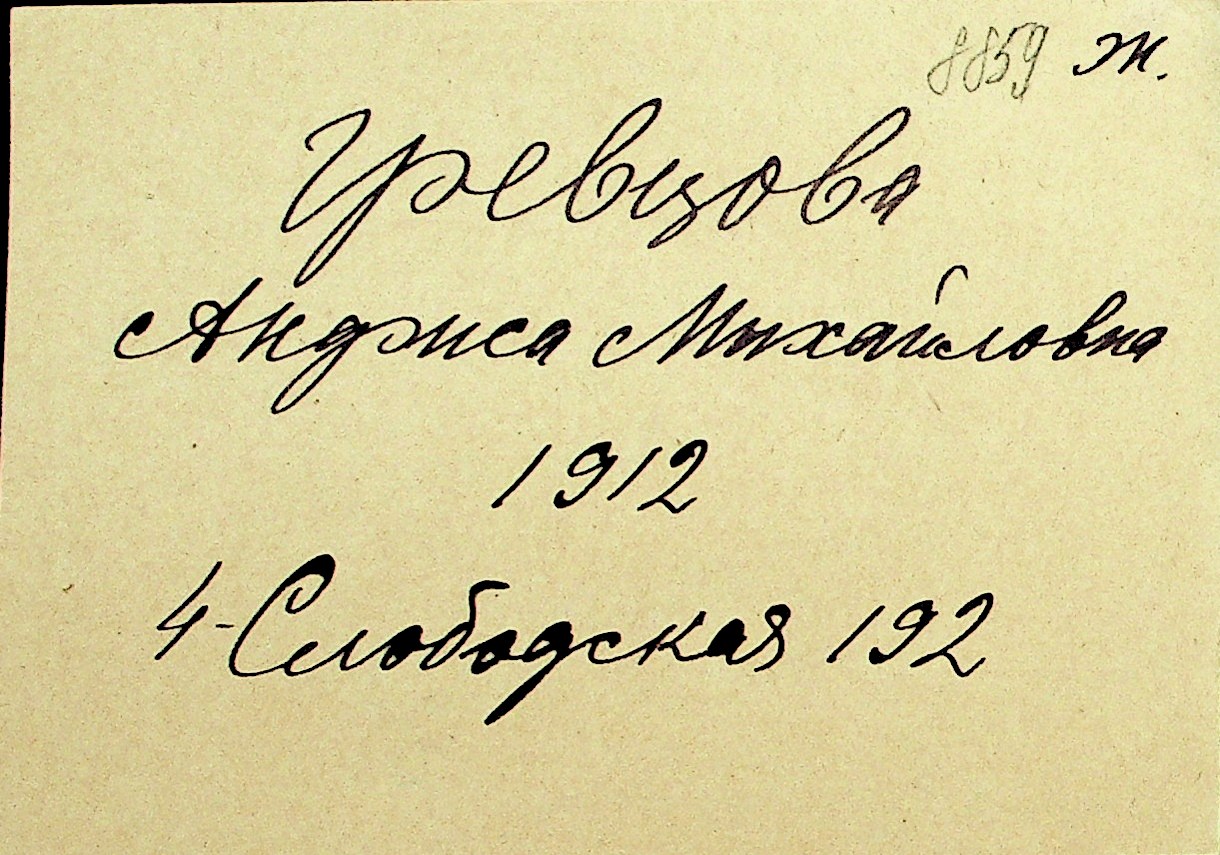 8859 ж.
Гревцова
Анджса Михайловна
1912
4-Слободская 192